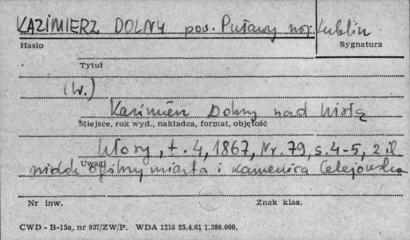 KAZIMIERZ DOLNY pow. Puławy woj. Lublin
Hasło Sygnatura
Tytuł
(W.)
Kazimierz Dolny nad Wisłą
Miejsce, rok wyd., nakładca, format, objętość
Kłosy, t. 4, 1867, Nr. 79, s. 4-5, 2 il.
Uwagi
widok ogólny miasta i kamienica Celejowska
Nr inw. Znak klas.
CWD - B-15a, nr 937/ZW/P. WDA 1216 25.4.61 1.380.000.